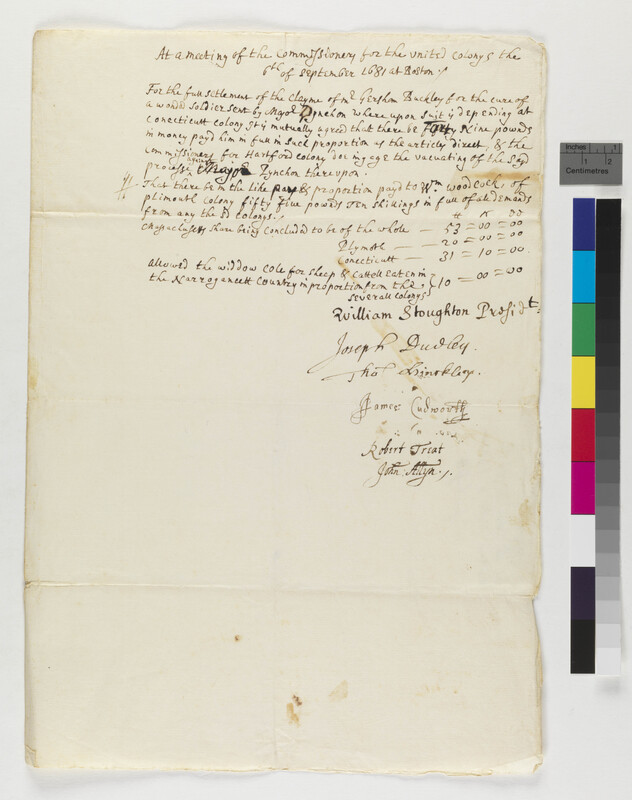 At a meeting of the Commissioners for the united Colonys the
6th of September 1681 at Boston
For the full settlement of the clayme of mr Gershom Buckley for the cure of
a wonded soldier sent by Mayor Pynchon where upon suit is depending at
Conecticutt Colony It is mutually agreed that there be forty Nine pownds
in money payd him in full in such proportion as the articles direct, & the
Commissioners for Hartford Colony doe ingage the vacuating of the Sayd
process against Mayor Pynchon thereupon.
That there be in the like pay & proportion payd to Wm woodcock, of
plimouth Colony fifty five pownds Ten shillings in full of all demands
from any the sd Colonys.
Massachusets share being concluded to be of the whole — 53 = 00 = 00
Plymoth — 20 = 00 = 00
Conecticutt — 31 = 10 = 00
allowed the widdow Cole for sheep & cattell eaten in
the Narrogancett Country in proportion from the 10 — 00 = 00
severall Colonys
William Stoughton Presidt
Joseph Dudley.
Tho Hinckley.
James Cudworth
Robert Treat
John Allyn
Inches 1 2
Centimetres